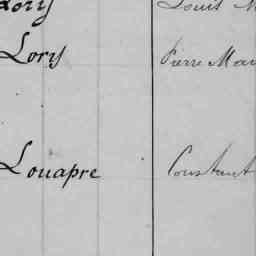 Lory Louis M
Lory Pierre Mar
Louapre Constant